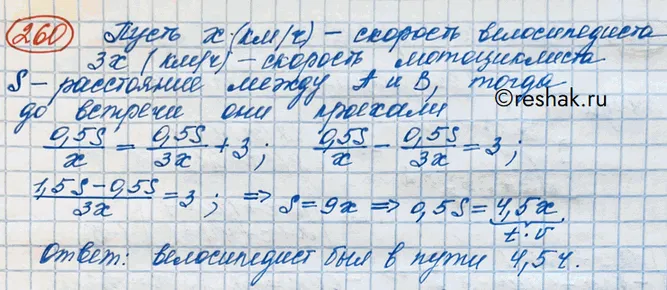 260 Пусть x (км/ч) – скорость велосипедиста
3x (км/ч) – скорость мотоциклиста
S – расстояние между A и B, тогда
©reshak.ru
до встречи они проехали
0,5S/x = 0,5S/3x + 3 ; 0,5S/x − 0,5S/3x = 3 ;
1,5S − 0,5S/3x = 3 ; ⇒ S = 9x ⇒ 0,5S = 4,5x
t·v
Ответ: велосипедист был в пути 4,5 ч.